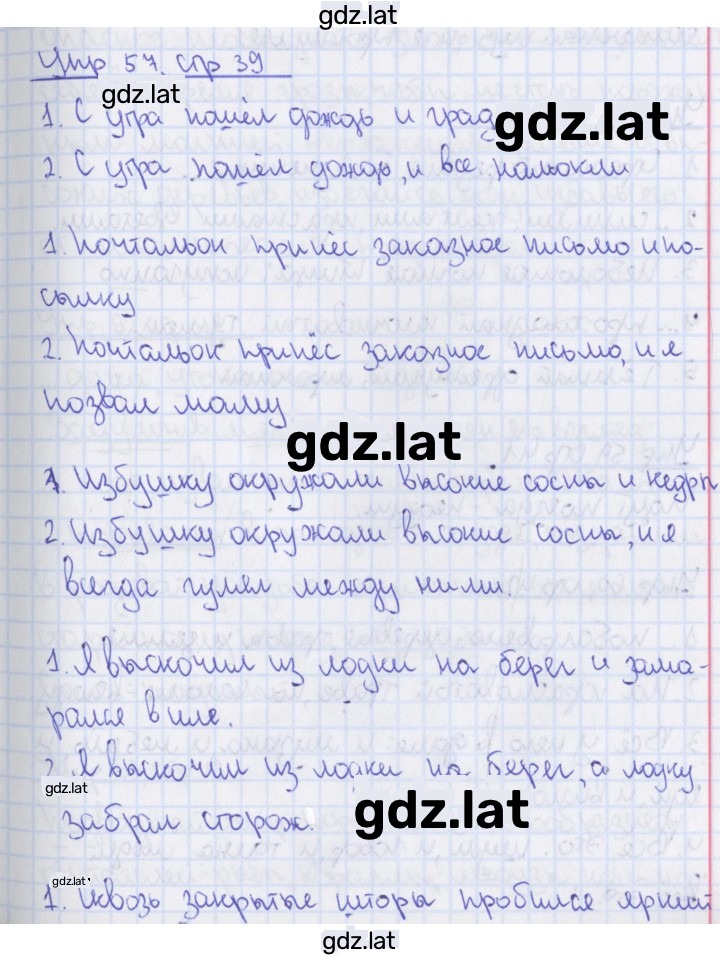 gdz.lat
Упр 57. стр 39
gdz.lat
1. С утра пошёл дождь и град
gdz.lat
2. С утра пошёл дождь, и все намокли
1. Почтальон принёс заказное письмо и по-
сылку
2. Почтальон принёс заказное письмо, и я
позвал маму
gdz.lat
1. Избушку окружали высокие сосны и кедры
2. Избушку окружали высокие сосны, и я
всегда гулял между ними
1. Я выскочил из лодки на берег и зама-
рался в иле.
2. Я выскочил из лодки на берег, а лодку
gdz.lat
забрал сторож.
gdz.lat
gdz.lat
1. Сквозь закрытые шторы пробился яркий
gdz.lat